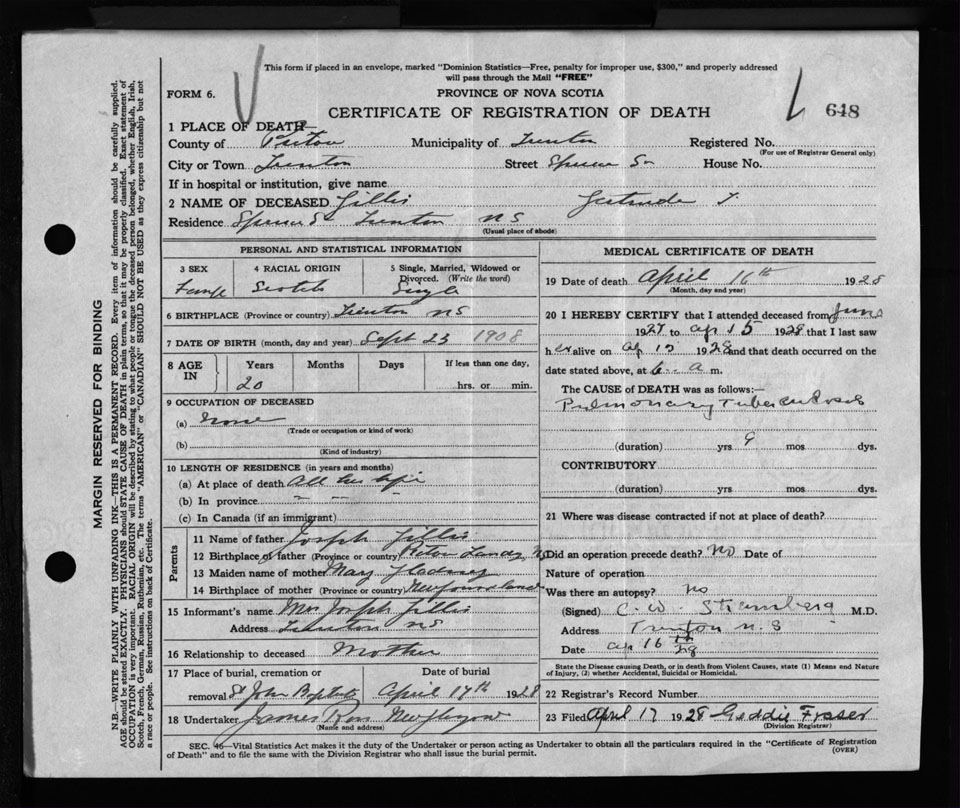 This form if placed in an envelope, marked "Dominion Statistics—Free, penalty for improper use, $300," and properly addressed
will pass through the Mail "FREE"
FORM 6.
PROVINCE OF NOVA SCOTIA
CERTIFICATE OF REGISTRATION OF DEATH
648
1 PLACE OF DEATH—
County of Pictou Municipality of Trenton Registered No.
(For use of Registrar General only)
City or Town Trenton Street Spruce St House No.
If in hospital or institution, give name
2 NAME OF DECEASED Gillis Gertrude T.
Residence Spruce St Trenton N S
(Usual place of abode)
PERSONAL AND STATISTICAL INFORMATION
3 SEX 4 RACIAL ORIGIN 5 Single, Married, Widowed or Divorced. (Write the word)
Female Scotch Single
6 BIRTHPLACE (Province or country) Trenton N S
7 DATE OF BIRTH (month, day and year) Sept 23 1908
8 AGE IN Years Months Days If less than one day,
20 hrs. or min.
9 OCCUPATION OF DECEASED
(a) None
(Trade or occupation or kind of work)
(b)
(Kind of industry)
10 LENGTH OF RESIDENCE (in years and months)
(a) At place of death All her life
(b) In province
(c) In Canada (if an immigrant)
Parents
11 Name of father Joseph Gillis
12 Birthplace of father (Province or country)
13 Maiden name of mother Mary
14 Birthplace of mother (Province or country) Newfoundland
15 Informant's name Mrs Joseph Gillis
Address Trenton N S
16 Relationship to deceased Mother
17 Place of burial, cremation or removal Date of burial
St John Baptist April 17th 1928
18 Undertaker James Ross New Glasgow
(Name and address)
MEDICAL CERTIFICATE OF DEATH
19 Date of death April 16th 1928
(Month, day and year)
20 I HEREBY CERTIFY that I attended deceased from June
1927 to ap 15 1928 that I last saw
her alive on ap 15 1928 and that death occurred on the
date stated above, at 6 a m.
The CAUSE of DEATH was as follows:—
Pulmonary Tuberculosis
(duration) yrs 9 mos dys.
CONTRIBUTORY
(duration) yrs. mos. dys.
21 Where was disease contracted if not at place of death?
Did an operation precede death? No Date of
Nature of operation
Was there an autopsy? no
(Signed) C. W. Stramberg M.D.
Address Trenton N. S
Date ap 16th 28
State the Disease causing Death, or in death from Violent Causes, state (1) Means and Nature
of Injury, (2) whether Accidental, Suicidal or Homicidal.
22 Registrar's Record Number
23 Filed April 17 1928 Geddie Fraser
(Division Registrar)
SEC. 46—Vital Statistics Act makes it the duty of the Undertaker or person acting as Undertaker to obtain all the particulars required in the "Certificate of Registration
of Death" and to file the same with the Division Registrar who shall issue the burial permit.
(OVER)
MARGIN RESERVED FOR BINDING
N.B.—WRITE PLAINLY WITH UNFADING INK—THIS IS A PERMANENT RECORD. Every item of information should be carefully supplied.
AGE should be stated EXACTLY. PHYSICIANS should STATE CAUSE OF DEATH in plain terms, so that it may be properly classified. Exact statement of
OCCUPATION is very important. RACIAL ORIGIN will be described by stating to what people or tongue the deceased person belonged, whether English, Irish,
Scotch, French, German, Russian, Ruthenian, etc. The terms "AMERICAN" or "CANADIAN" SHOULD NOT BE USED as they express citizenship but not
a race or people. See instructions on back of Certificate.